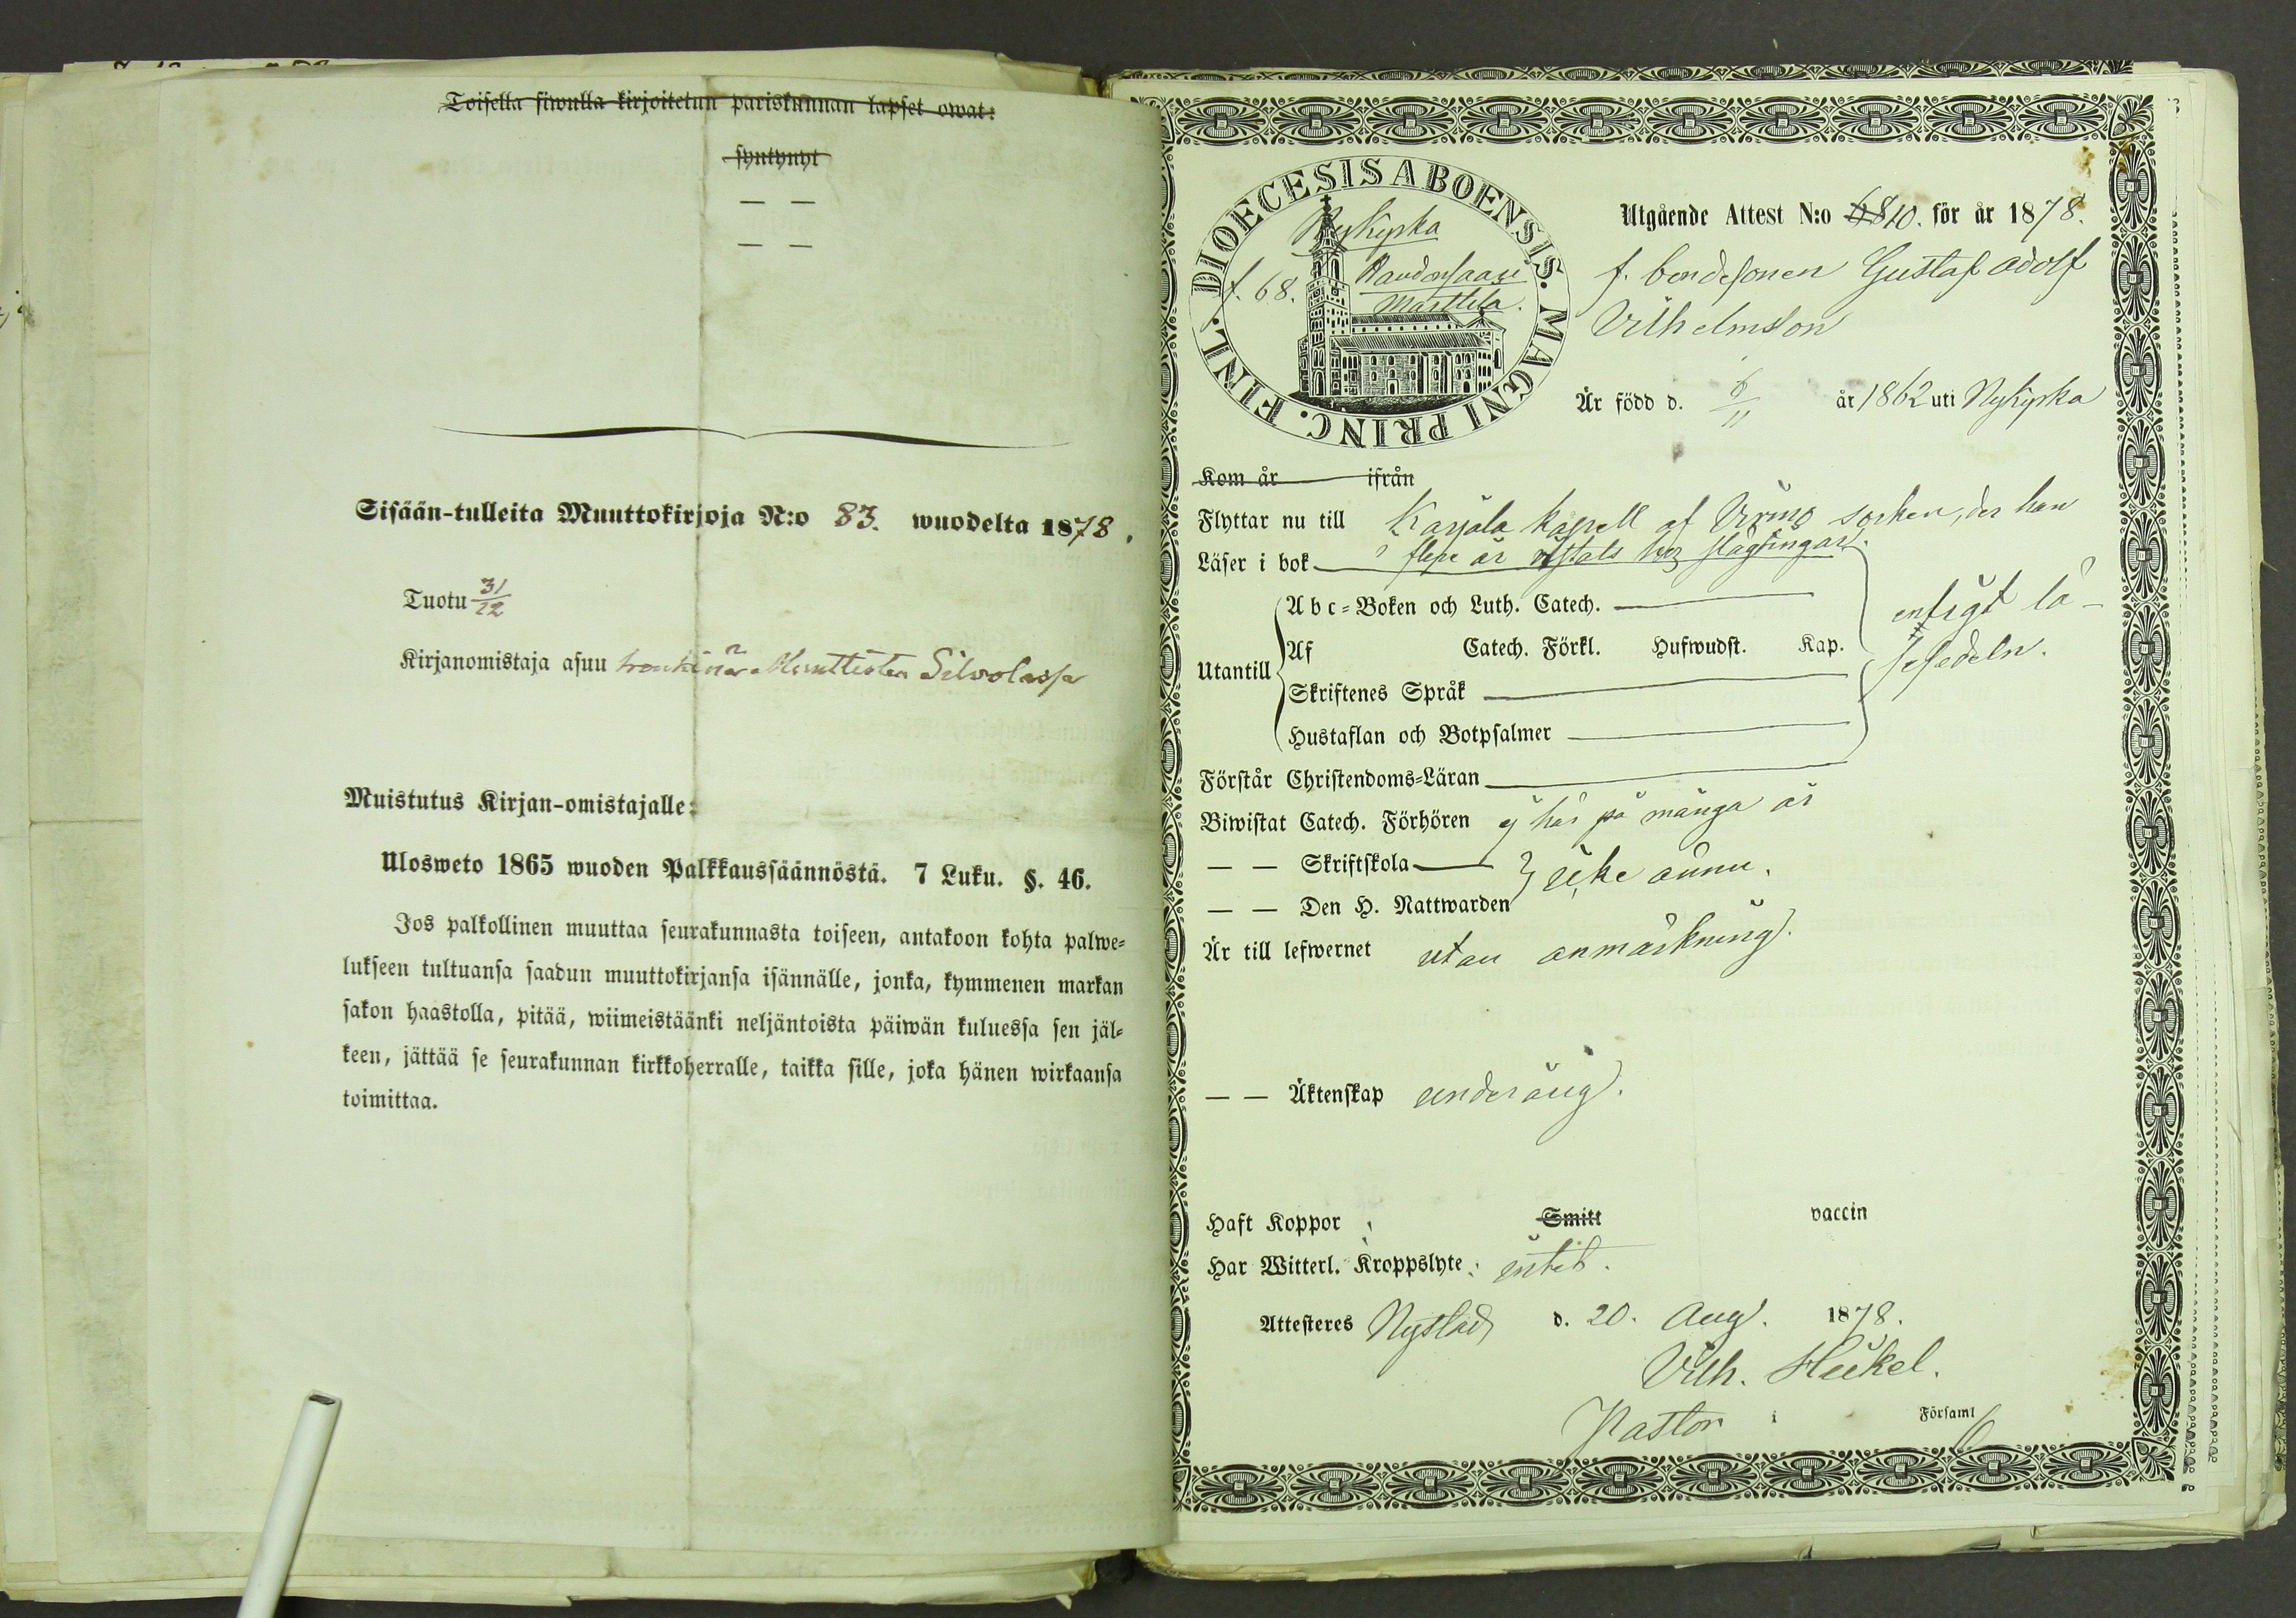 Toisella siwulla kirjoitetun pariskunnan lapset owat:
syntynyt
— —
— —
Sisään-tulleita Muuttokirjoja N:o 83. wuodelta 1878.
Tuotu 31/12
Kirjanomistaja asuu
Muistutus Kirjan-omistajalle:
Ulosweto 1865 wuoden Palkkaussäännöstä. 7 Luku. §. 46.
Jos palkollinen muuttaa seurakunnasta toiseen, antakoon kohta palwe-
lukseen tultuansa saadun muuttokirjansa isännälle, jonka, kymmenen markan
sakon haastolla, pitää, wiimeistäänki neljäntoista päiwän kuluessa sen jäl-
keen, jättää se seurakunnan kirkkoherralle, taikka sille, joka hänen wirkaansa
toimittaa.
DIOECESIS ABOENSIS. MAGNI PRINC. FINL.
Nykyrka
f. 68.
Marttila.
Utgående Attest N:o 10. för år 1878.
f. bondesonen Gustaf Adolf
Vilhelmson
Är född d. 6/11 år 1862 uti Nykyrka
Kom år ifrån
Flyttar nu till Karjala kapell af Virmo socken, der han
Läser i bok flere år vistats hos slägtingar.
Utantill
Abc-Boken och Luth. Catech.
Af Catech. Förkl. Hufwudst. Kap.
Skriftenes Språk
Hustaflan och Botpsalmer
enligt lä-
sesedeln.
Förstår Christendoms-Läran
Biwistat Catech. Förhören ej här på många år
— — Skriftskola
— — Den H. Nattwarden } icke ännu.
Är till lefwernet utan anmärkning.
— — Äktenskap underårig.
Haft Koppor Smitt vaccin
Har Witterl. Kroppslyte: intet.
Attesteres Nystad d. 20. Aug. 1878.
Vilh. Heikel.
Pastor i Församl